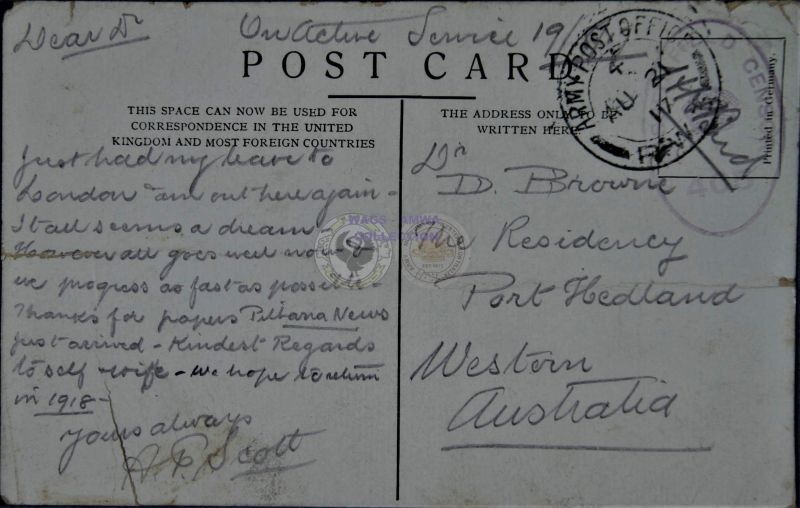 Dear Dr
On Active Service 19
POST CARD
THIS SPACE CAN NOW BE USED FOR
CORRESPONDENCE IN THE UNITED
KINGDOM AND MOST FOREIGN COUNTRIES
Just had my leave to
London am out here again -
It all seems a dream -
However all goes well now &
we progress as fast as possible -
Thanks for papers Pilbara News
just arrived - Kindest Regards
to self wife - we hope to return
in 1918 -
Yours always
A. P. Scott
THE ADDRESS ONLY TO BE
WRITTEN HERE
Dr
D. Browne
The Residency
Port Hedland
Western
Australia
ARMY POST OFFICE
AU 21
17
Printed in Germany.
WAGS - AMWA
COLLECTION